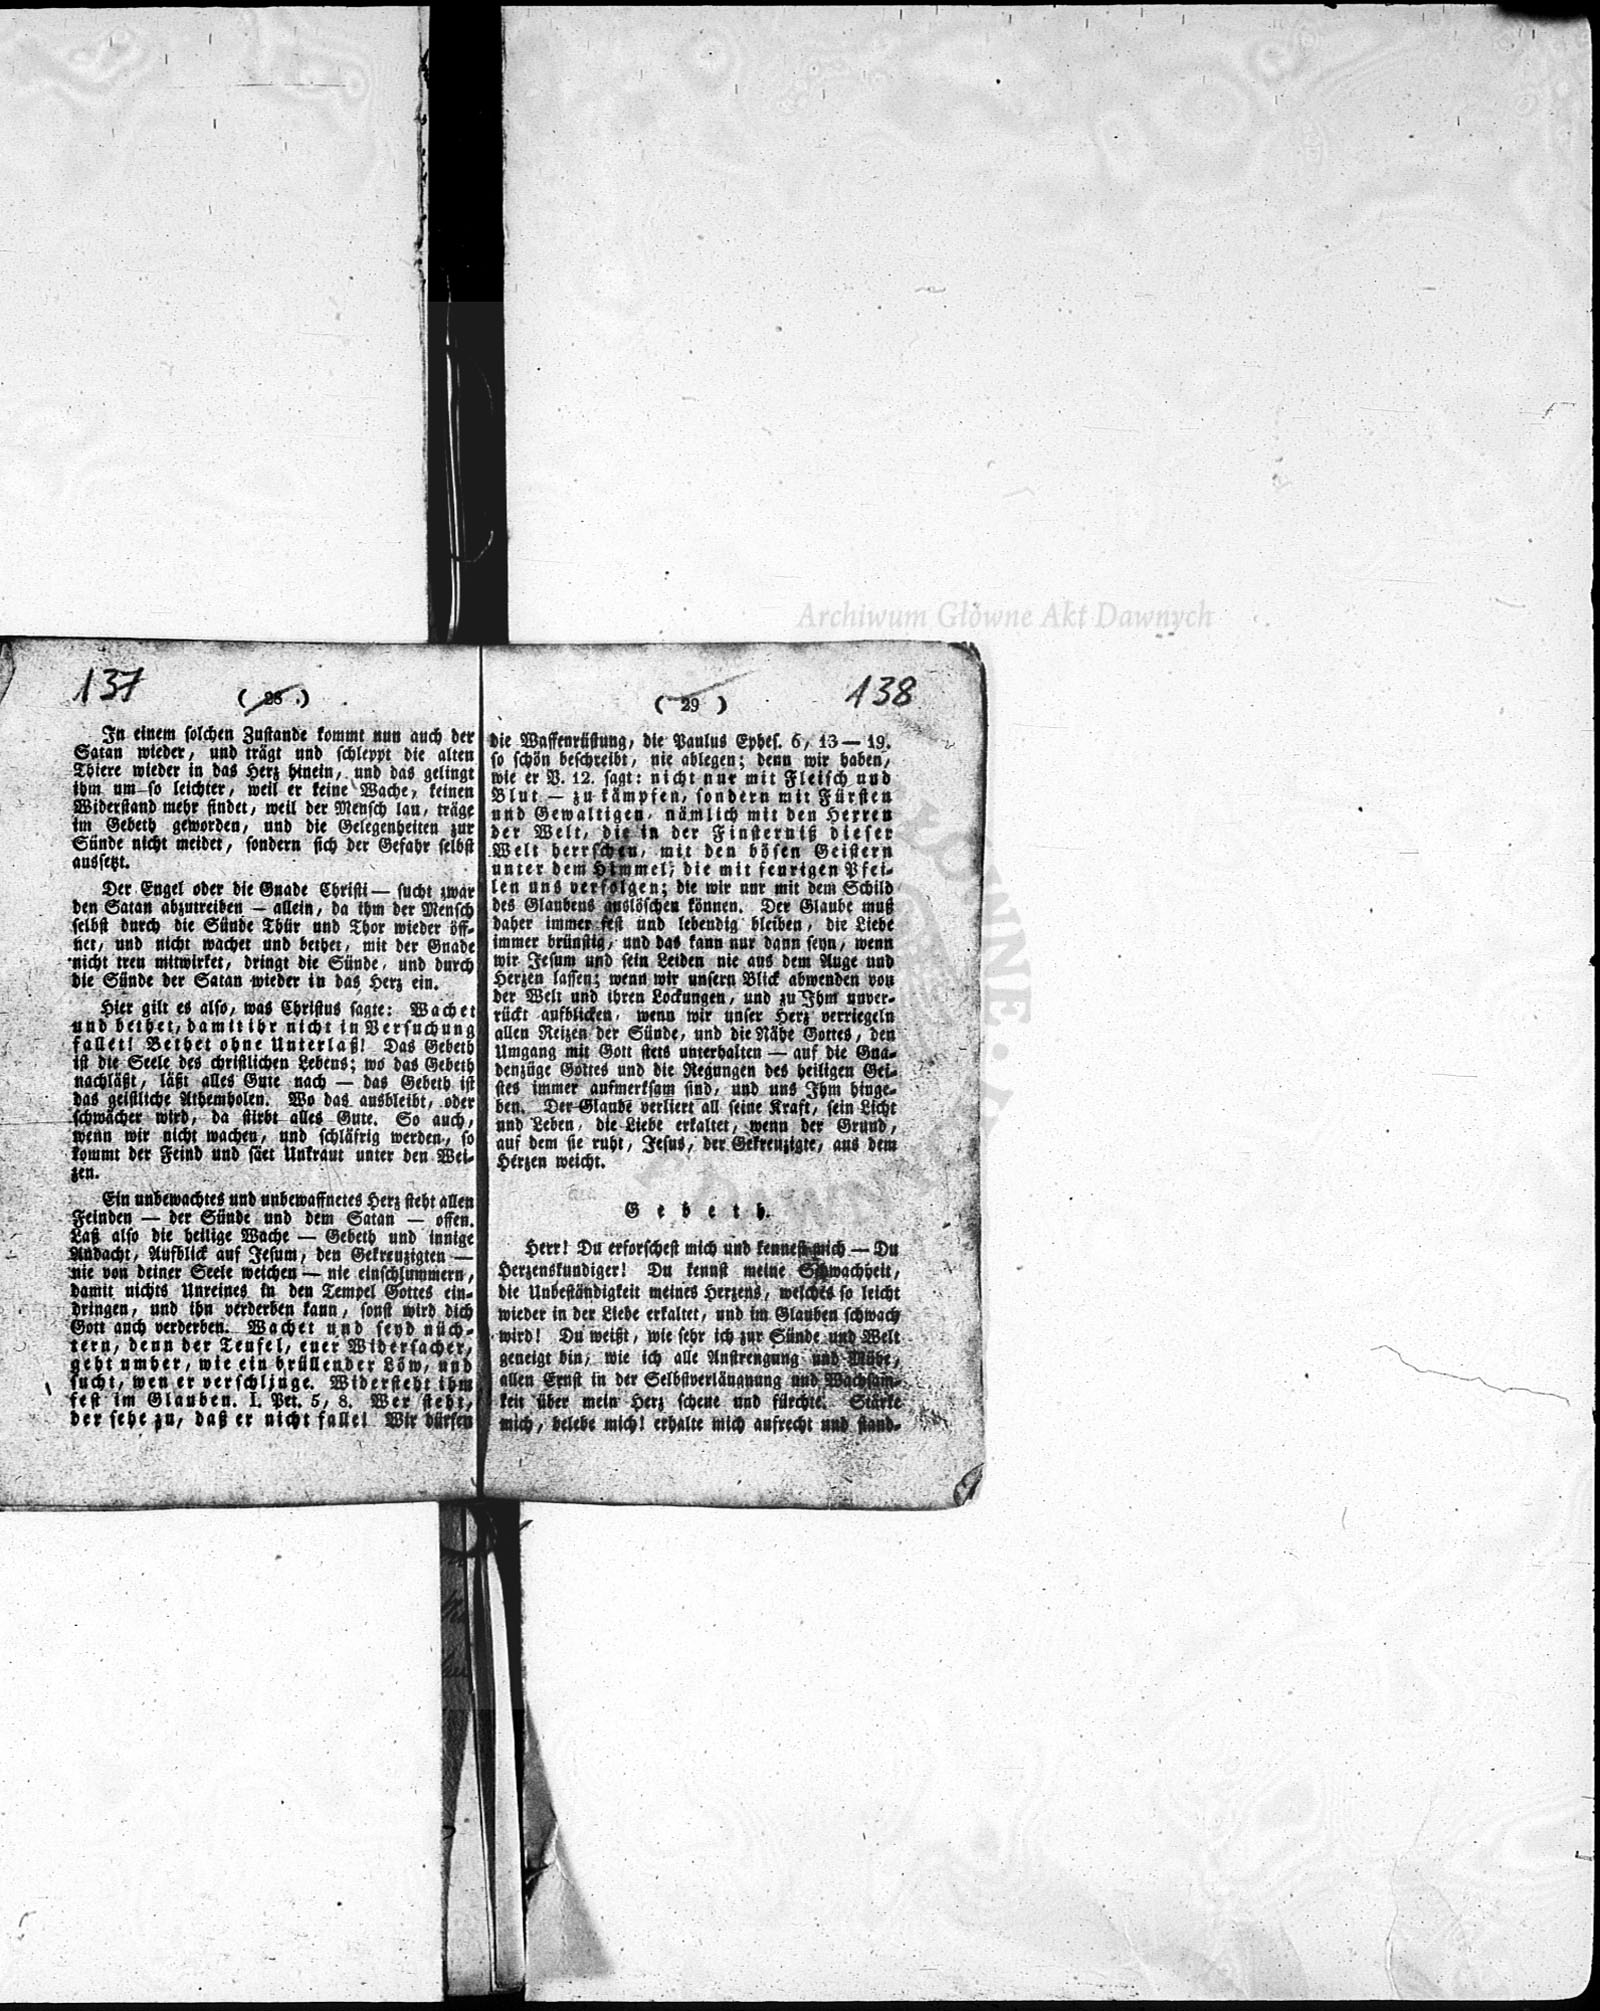 Archiwum Główne Akt Dawnych
137
( 28 )
In einem solchen Zustande kommt nun auch der
Satan wieder, und trägt und schleppt die alten
Thiere wieder in das Herz hinein, und das gelingt
ihm um so leichter, weil er keine Wache, keinen
Widerstand mehr findet, weil der Mensch lau, träge
im Gebeth geworden, und die Gelegenheiten zur
Sünde nicht meidet, sondern sich der Gefahr selbst
aussetzt.
Der Engel oder die Gnade Christi — sucht zwar
den Satan abzutreiben — allein, da ihm der Mensch
selbst durch die Sünde Thür und Thor wieder öff-
net, und nicht wachet und bethet, mit der Gnade
nicht treu mitwirket, dringt die Sünde, und durch
die Sünde der Satan wieder in das Herz ein.
Hier gilt es also, was Christus sagte: Wachet
und bethet, damit ihr nicht in Versuchung
fallet! Bethet ohne Unterlaß! Das Gebeth
ist die Seele des christlichen Lebens; wo das Gebeth
nachläßt, läßt alles Gute nach — das Gebeth ist
das geistliche Athemholen. Wo das ausbleibt, oder
schwächer wird, da stirbt alles Gute. So auch,
wenn wir nicht wachen, und schläfrig werden, so
kommt der Feind und säet Unkraut unter den Wei-
zen.
Ein unbewachtes und unbewaffnetes Herz steht allen
Feinden — der Sünde und dem Satan — offen.
Laß also die heilige Wache — Gebeth und innige
Andacht, Aufblick auf Jesum, den Gekreuzigten —
nie von deiner Seele weichen — nie einschlummern,
damit nichts Unreines in den Tempel Gottes ein-
dringen, und ihn verderben kann, sonst wird dich
Gott auch verderben. Wachet und seyd nüch-
tern, denn der Teufel, euer Widersacher,
geht umher, wie ein brüllender Löw, und
sucht, wen er verschlinge. Widersteht ihm
fest im Glauben. I. Pet. 5, 8. Wer steht,
der sehe zu, daß er nicht falle! Wir dürfen
138
( 29 )
die Waffenrüstung, die Paulus Ephes. 6, 13 — 19.
so schön beschreibt, nie ablegen; denn wir haben,
wie er V. 12. sagt: nicht nur mit Fleisch und
Blut — zu kämpfen, sondern mit Fürsten
und Gewaltigen, nämlich mit den Herren
der Welt, die in der Finsterniß dieser
Welt herrschen, mit den bösen Geistern
unter dem Himmel; die mit feurigen Pfei-
len uns verfolgen; die wir nur mit dem Schild
des Glaubens auslöschen können. Der Glaube muß
daher immer fest und lebendig bleiben, die Liebe
immer brünstig, und das kann nur dann seyn, wenn
wir Jesum und sein Leiden nie aus dem Auge und
Herzen lassen; wenn wir unsern Blick abwenden von
der Welt und ihren Lockungen, und zu Ihm unver-
rückt aufblicken, wenn wir unser Herz verriegeln
allen Reizen der Sünde, und die Nähe Gottes, den
Umgang mit Gott stets unterhalten — auf die Gna-
denzüge Gottes und die Regungen des heiligen Gei-
stes immer aufmerksam sind, und uns Ihm hinge-
ben. Der Glaube verliert all seine Kraft, sein Licht
und Leben, die Liebe erkaltet, wenn der Grund,
auf dem sie ruht, Jesus, der Gekreuzigte, aus dem
Herzen weicht.
Gebeth.
Herr! Du erforschest mich und kennest mich — Du
Herzenskundiger! Du kennst meine Schwachheit,
die Unbeständigkeit meines Herzens, welches so leicht
wieder in der Liebe erkaltet, und im Glauben schwach
wird! Du weißt, wie sehr ich zur Sünde und Welt
geneigt bin, wie ich alle Anstrengung und Mühe,
allen Ernst in der Selbstverläugnung und Wachsam-
keit über mein Herz scheue und fürchte. Stärke
mich, belebe mich! erhalte mich aufrecht und stand-